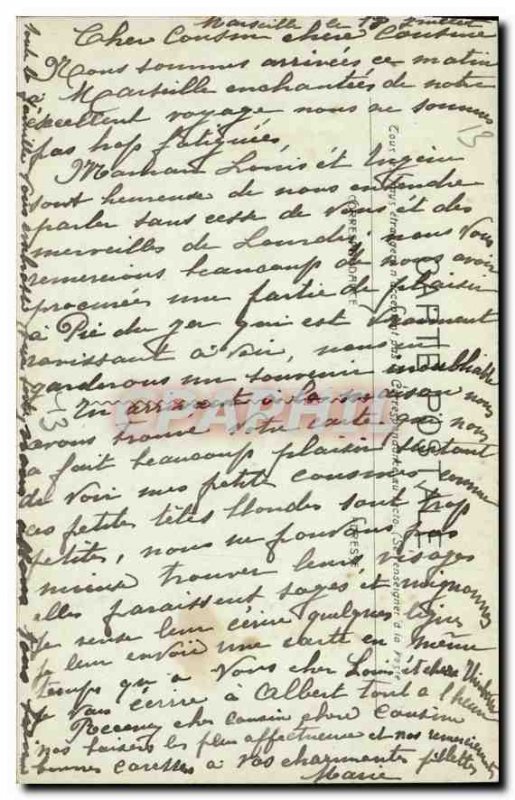 Marseille le 18 Juillet
Cher Cousin chère Cousine
Nous sommes arrivées ce matin
à Marseille enchantées de notre
excellent voyage nous ne sommes
pas trop fatiguées,
Maman Louis et Eugénie
sont heureuse de nous entendre
parler sans cesse de Vous et des
merveilles de Lourdes, nous Vous
remercions beaucoup de nous avoir
procurées une partie de plaisir
à Pic du ger qui est vraiment
ravissant à voir, nous en
garderons un souvenir inoubliable
En arrivant à la maison nous
avons trouvé Votre carte qui nous
a fait beaucoup plaisir surtout
de voir mes petite cousines comme
ces petites têtes blondes sont trop
petites, nous ne pouvons pas
mieux trouver leurs visages
elles paraissent sages et mignonnes
Je pense leur écrire quelques lignes
Je leur envoie une carte en même
temps qu'à Vous cher Louis et chère
Je vais écrire à Albert tout à l'heure
Recevez cher cousin chère cousine
nos baisers les plus affectueuse et nos remerciements
bonnes caresses à vos charmantes fillettes
Marie
CARTE POSTALE
CORRESPONDANCE
ADRESSE
13
CPARPHIL